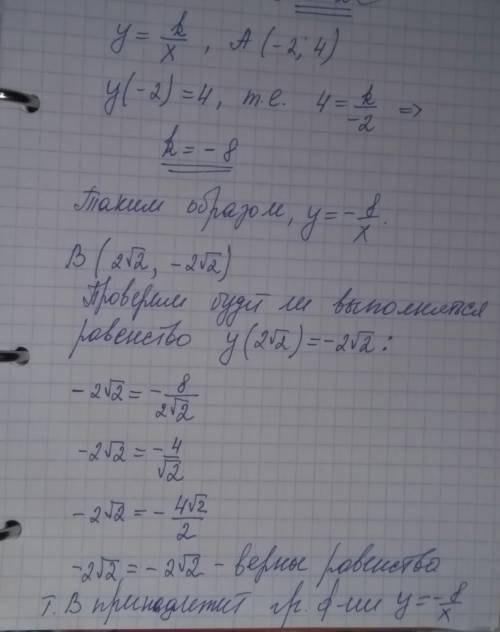 y = k/x , A (-2; 4)
y(-2) = 4, т.е. 4 = k/-2 =>
k = - 8
Таким образом, y = - 8/x.
B (2√2, -2√2)
Проверим будет ли выполнятся
равенство y(2√2) = -2√2:
-2√2 = - 8/2√2
-2√2 = -4/√2
-2√2 = - 4√2/2
-2√2 = -2√2 - верны равенства
т. B принадлежит гр. ф-ии y = -8/x